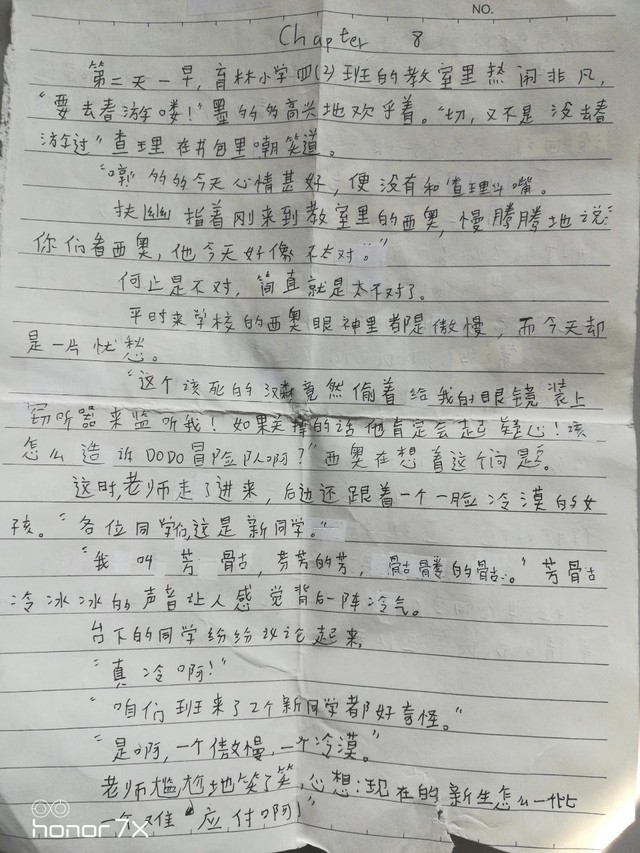 NO.
Chapter 8
第二天一早，育林小学四(2)班的教室里热闹非凡，
“要去春游喽！”墨多多高兴地欢乎着。“切，又不是没去春
游过”查理在书包里嘲笑道。
“嘞”多多今天心情甚好，便没有和查理斗嘴。
扶幽指着刚来到教室里的西奥，慢腾腾地说：“
你们看西奥，他今天好像不太对。”
何止是不对，简直就是太不对了。
平时来学校的西奥眼神里都是傲慢，而今天却
是一片忧愁。
“这个该死的汉森竟然偷着给我的眼镜装上
窃听器来监听我！如果关掉的话他肯定会起疑心！该
怎么造诉DODO冒险队啊？”西奥在想着这个问题。
这时，老师走了进来，后边还跟着一个一脸冷漠的女
孩。“各位同学们，这是新同学。”
“我叫芳骷，芬芳的芳，骷髅的骷。”芳骷
冷冰冰的声音让人感觉背后一阵冷气。
台下的同学纷纷议论起来，
“真冷啊！”
“咱们班来了2个新同学都好奇怪。”
“是啊，一个傲慢，一个冷漠。”
老师尴尬地笑了笑，心想：现在的新生怎么一比
一个难应付啊！
honor 7X